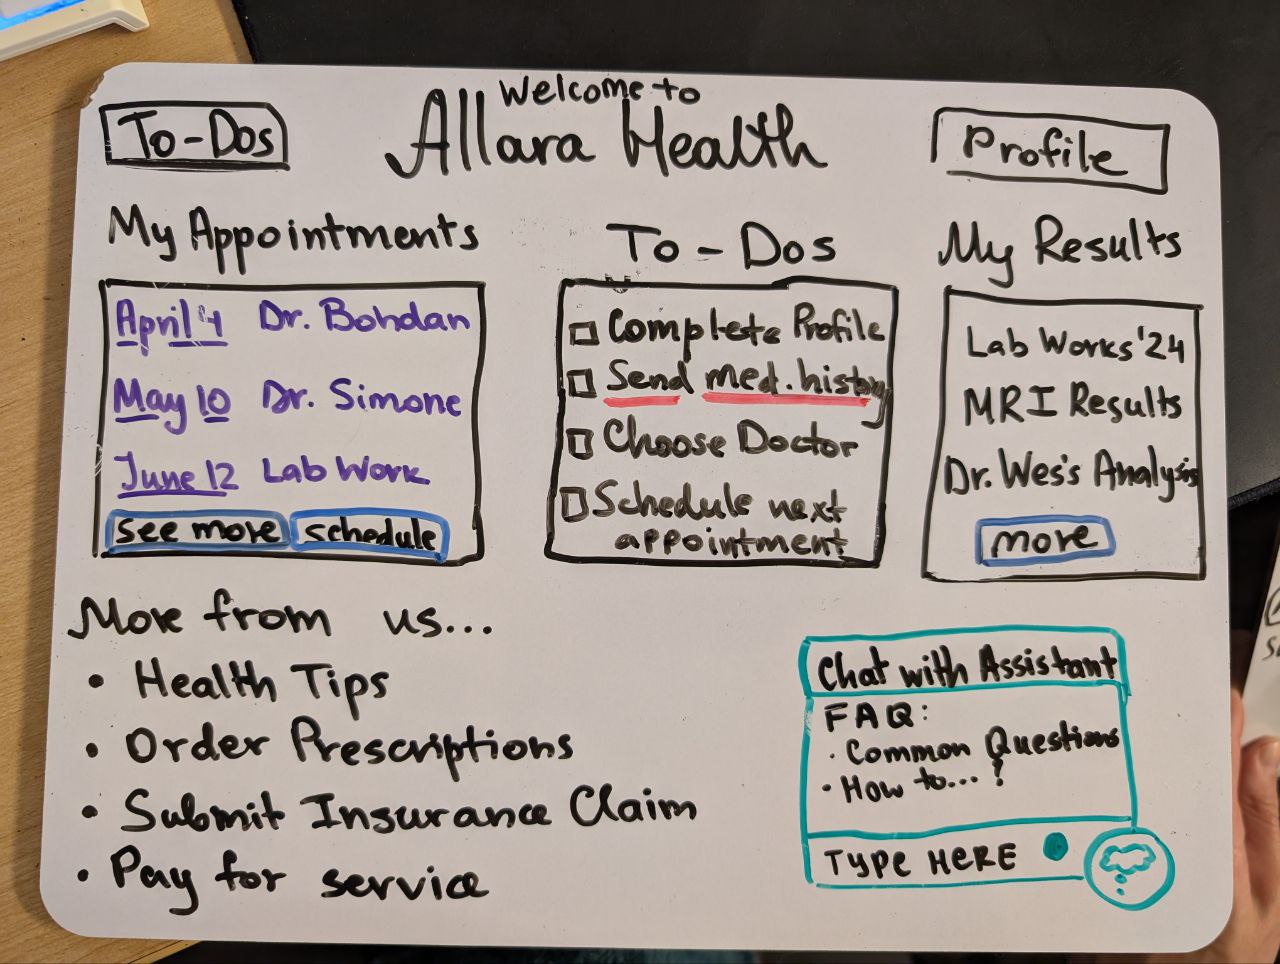 Welcome to
To-Dos
Allara Health
Profile
My Appointments
April 4 Dr. Bohdan
May 10 Dr. Simone
June 12 Lab Work
see more schedule
To-Dos
Complete Profile
Send med. history
Choose Doctor
Schedule next
appointment
My Results
Lab Works '24
MRI Results
Dr. Wes's Analysis
more
More from us...
• Health Tips
• Order Prescriptions
• Submit Insurance Claim
• Pay for service
Chat with Assistant
FAQ:
• Common Questions
• How to... ?
TYPE HERE